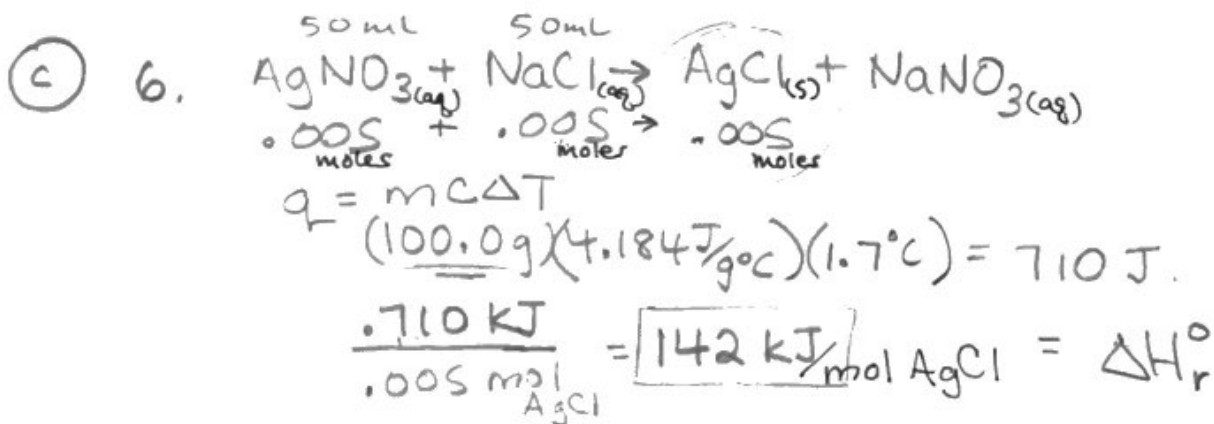 50 mL 50 mL
C 6. AgNO₃(aq) + NaCl(aq) → AgCl(s) + NaNO₃(aq)
.005 moles + .005 moles → .005 moles
q = mCΔT
(100.0g)(4.184 J/g°C)(1.7°C) = 710 J.
.710 kJ / .005 mol AgCl = 142 kJ/mol AgCl = ΔH°r